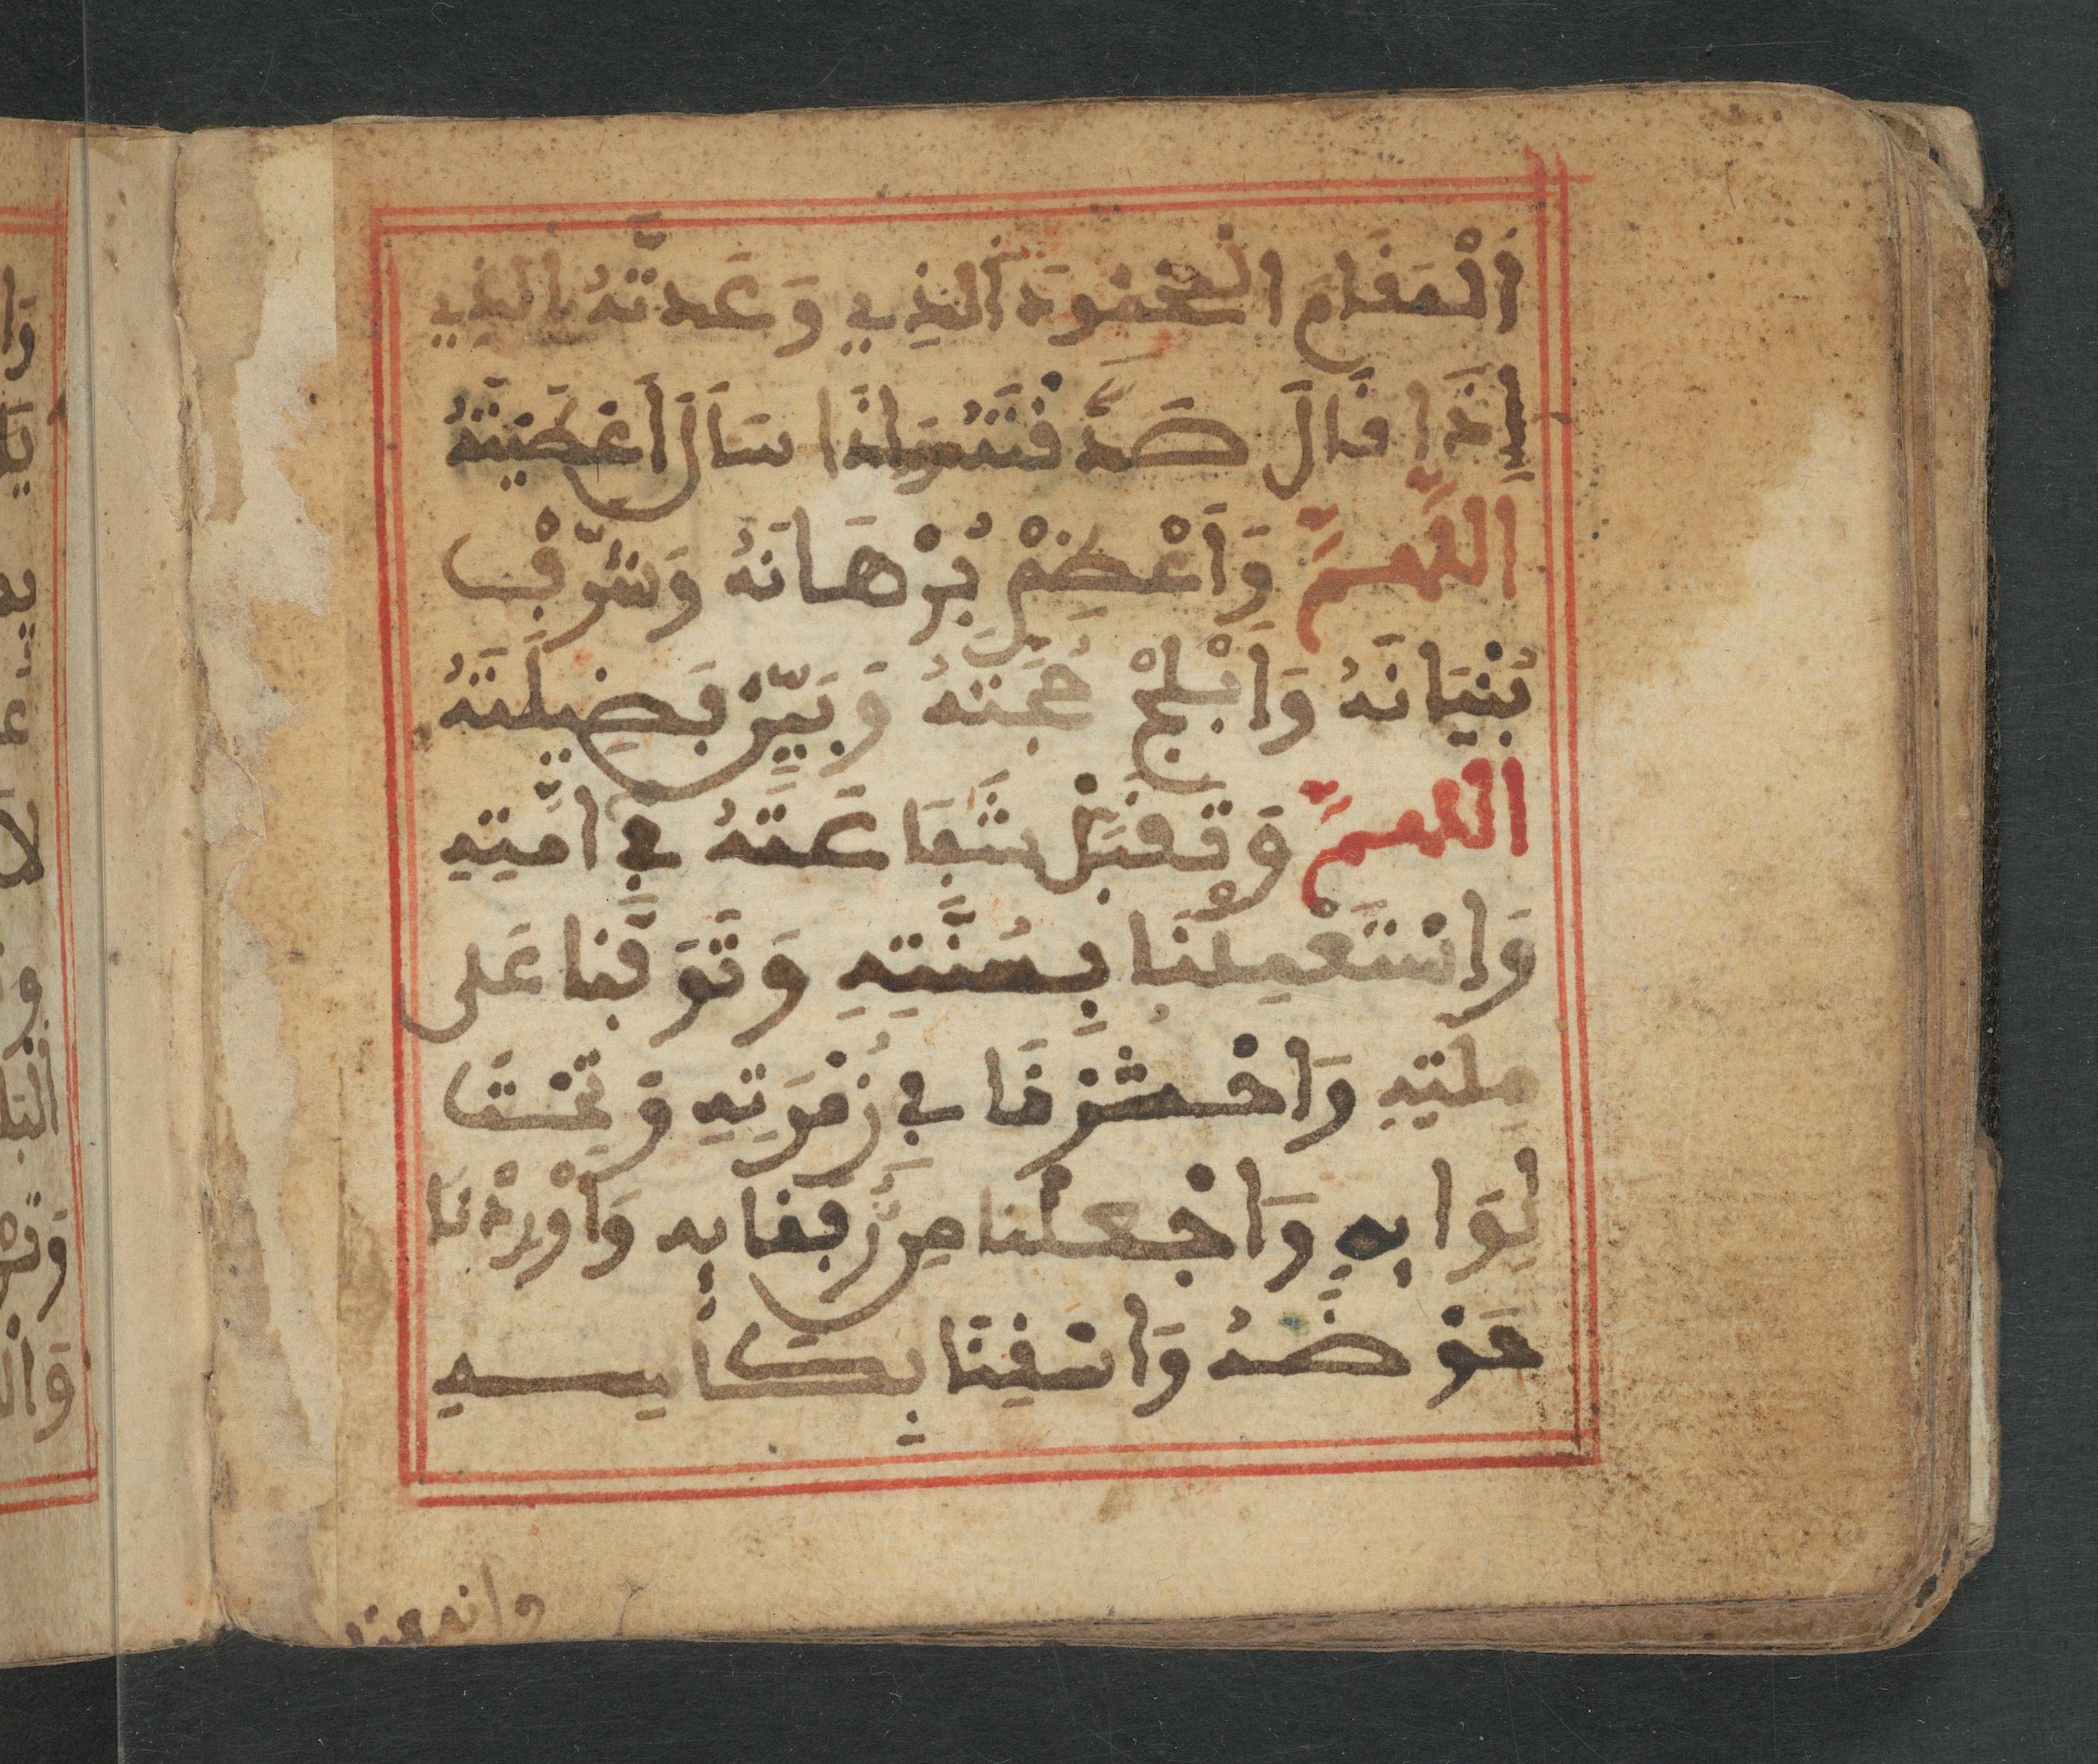 اَلْمَقَامَ الْمَحْمُودَ الَّذِي وَعَدتَّهُ الَّذِي
إِذَا قَالَ صَدَّقْتَهُ وَإِذَا سَأَلَ أَعْطَيْتَهُ
اللَّهُمَّ وَأَعْظِمْ بُرْهَانَهُ وَشَرِّفْ
بُنْيَانَهُ وَأَبْلِجْ حُجَّتَهُ وَبَيِّنْ فَضِيلَتَهُ
اللَّهُمَّ وَتَقَبَّلْ شَفَاعَتَهُ فِي أُمَّتِهِ
وَاسْتَعْمِلْنَا بِسُنَّتِهِ وَتَوَفَّنَا عَلَى
مِلَّتِهِ وَاحْشُرْنَا فِي زُمْرَتِهِ وَتَحْتَ
لِوَايِهِ وَاجْعَلْنَا مِن رُّفَقَايِهِ وَأَوْرِدْنَا
حَوْضَهُ وَاسْقِنَا بِكَأْسِهِ
وانفعنا